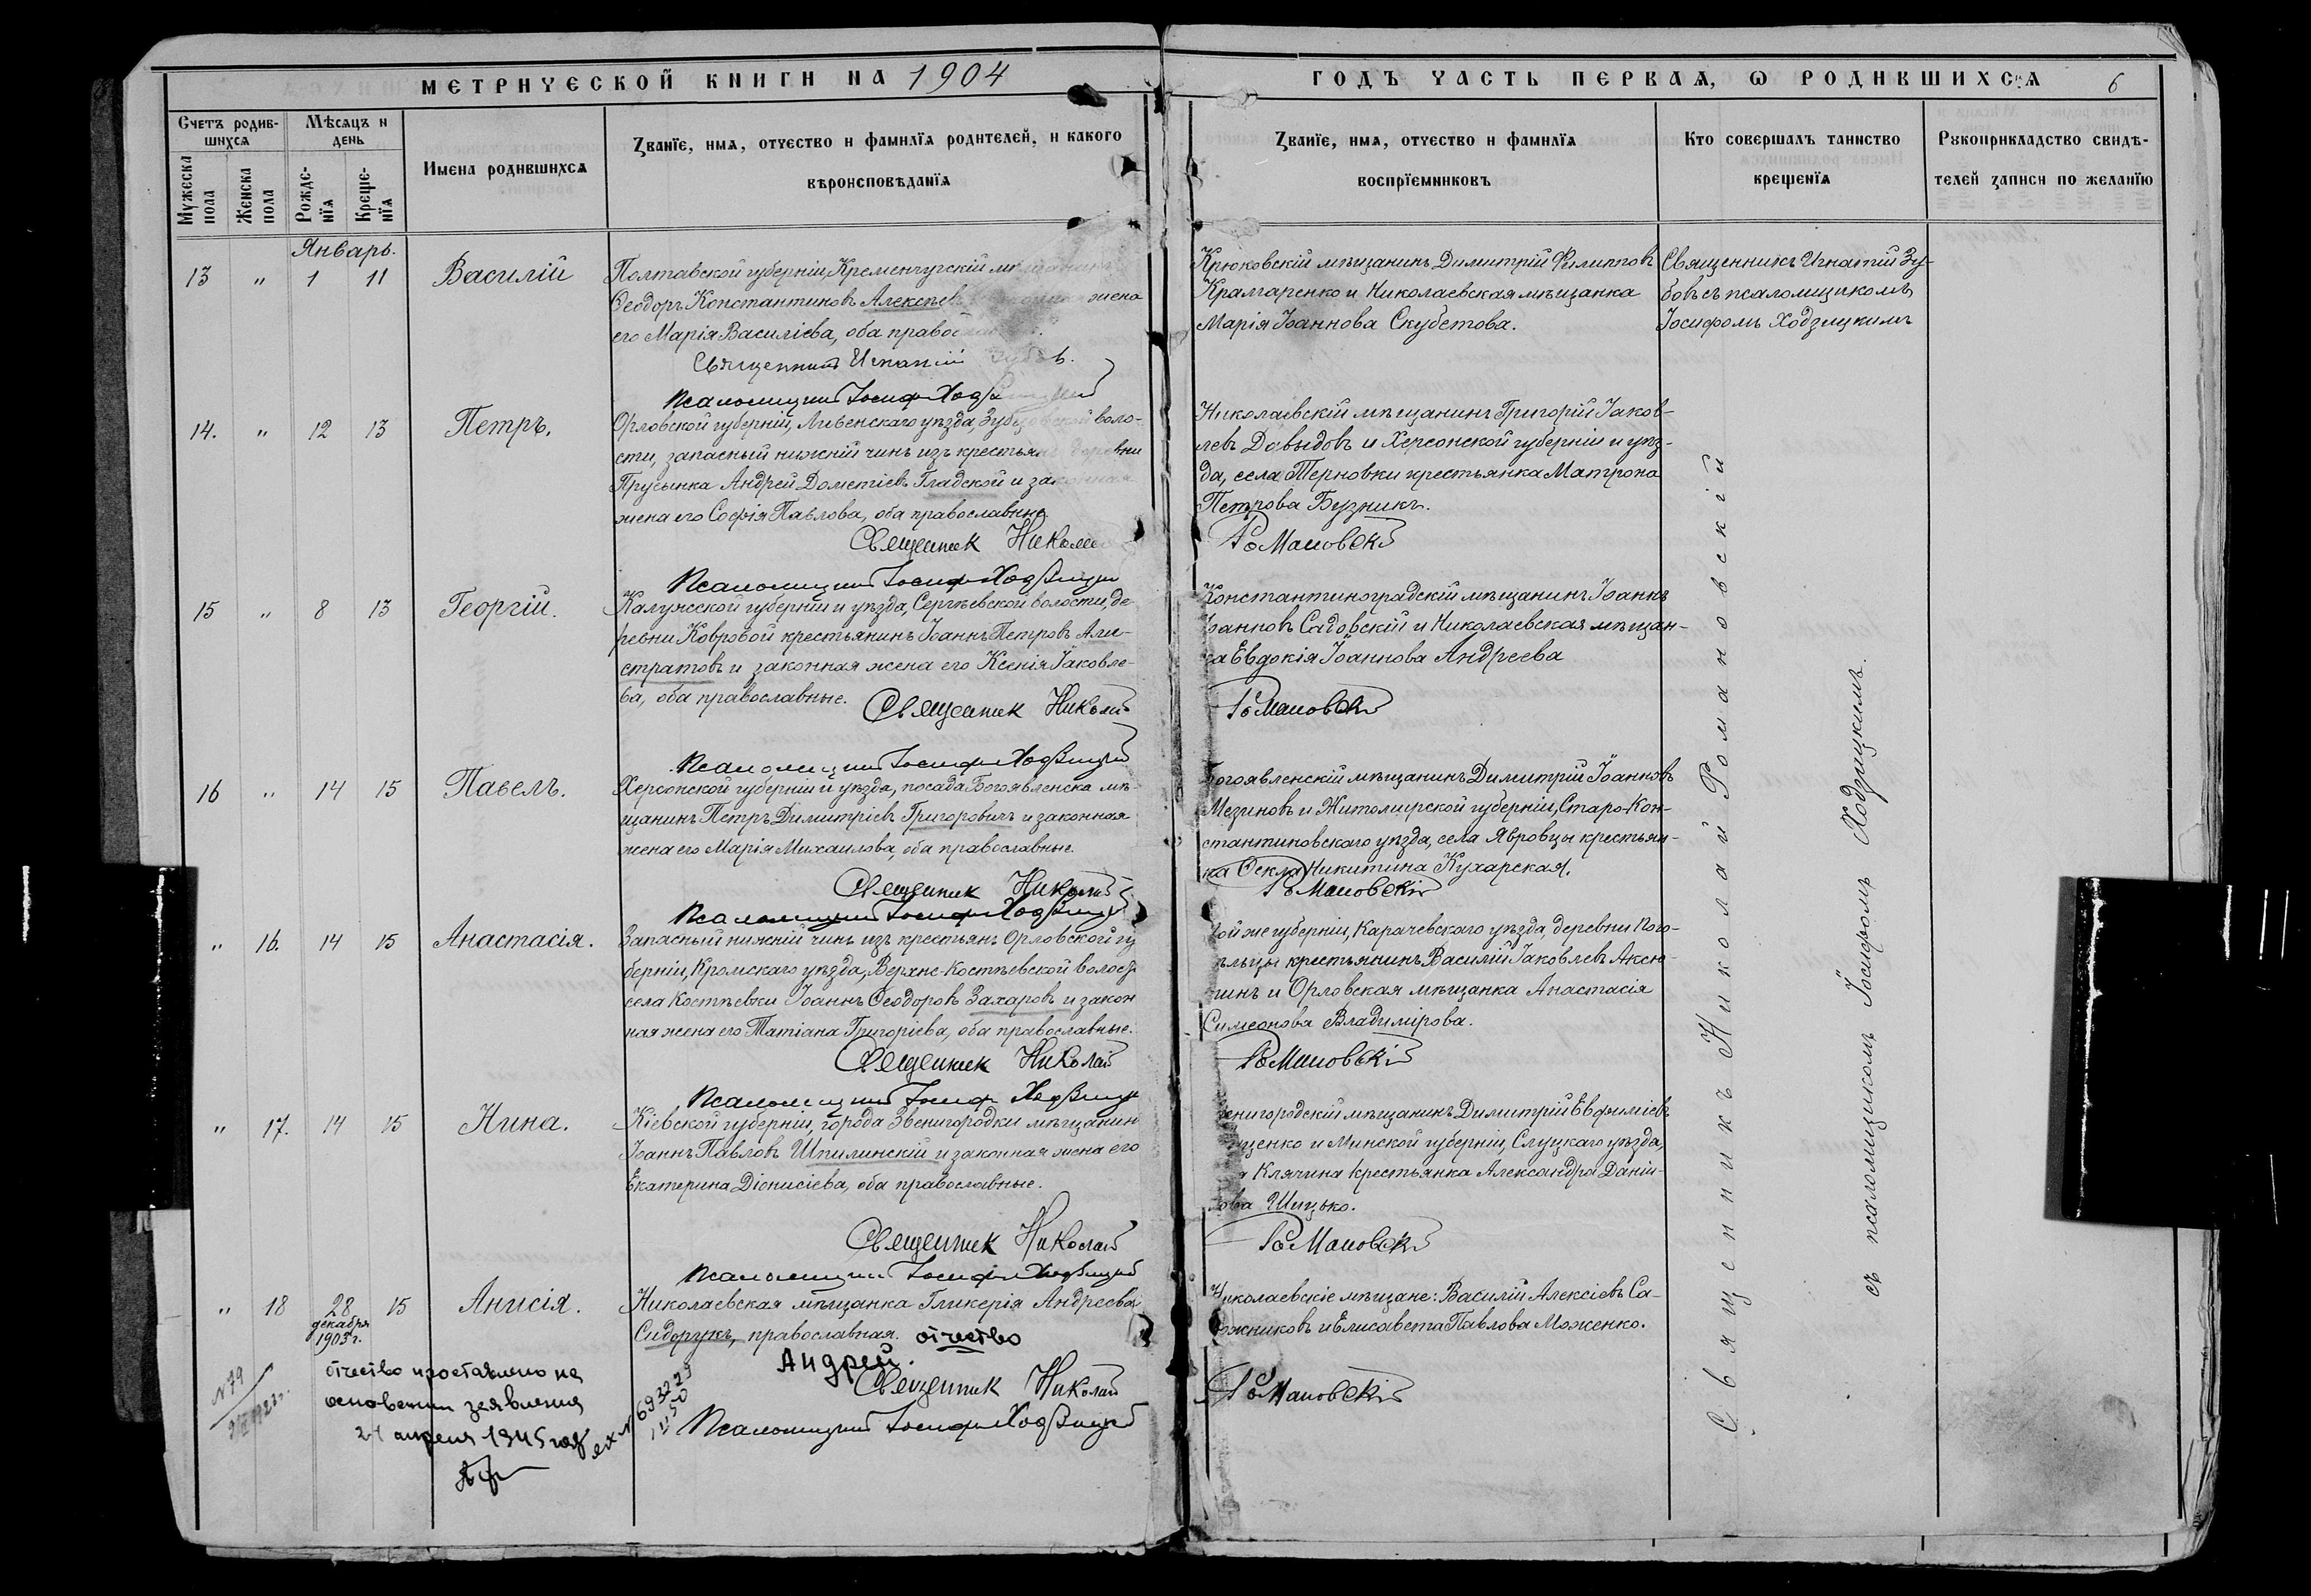 МЕТРИЧЕСКОЙ КНИГИ НА 1904
Счетъ родив-
шихся
Мѣсяцъ и
день
Мужеска
пола
Женска
пола
Рожде-
нїя
Креще-
нїя
Имена родившихся
Званїе, имя, отчество и фамилїя родителей, и какого
вѣроисповѣданїя
Январь.
13 " 1 11 Василій
Полтавской губерніи, Кременчугскій
Ѳеодоръ Константиновъ жена
его Марія Василіева, оба
Священникъ Игнатій
Псаломщикъ Іосифъ
14. " 12 13 Петръ.
Орловской губерніи, Ливенскаго уѣзда, воло-
сти, запасный нижній чинъ изъ крестьянъ деревни
Прусынка Андрей Дометіевъ Гладской и законная
жена его Софія Павлова, оба православные.
Священник Николай
Псаломщикъ Іосифъ Ходзицкій
15 " 8 13 Георгій.
Калужской губерніи и уѣзда, Сергѣевской волости, де-
ревни Ковровой крестьянинъ Іоаннъ Петровъ Али-
стратовъ и законная жена его Ксенія Іаковле-
ва, оба православные.
Священник Николай
Псаломщикъ Іосифъ Ходзицкій
16 " 14 15 Павелъ.
Херсонской губерніи и уѣзда, посада Богоявленска мѣ-
щанинъ Петръ Димитріевъ Григоровичъ и законная
жена его Марія Михаилова, оба православные.
Священник Николай
Псаломщикъ Іосифъ Ходзицкій
" 16. 14 15 Анастасія.
Запасный нижній чинъ изъ крестьянъ Орловской гу
берніи, Кромскаго уѣзда, Верхне-Костѣевской волости
села Костѣевки Іоаннъ Ѳеодоровъ Захаровъ и закон
ная жена его Татіана Григоріева, оба православные.
Священник Николай
Псаломщикъ Іосифъ Ходзицкій
" 17. 14 15 Нина.
Кіевской губерніи, города Звенигородки мѣщанин
Іоаннъ Павловъ Шпилинскій и законная жена его
Екатерина Діонисіева, оба православные.
Священник Николай
Псаломщикъ Іосифъ Ходзицкій
" 18 28 15 Анисія.
декабря
1903 г.
Николаевская мѣщанка Гликерія Андреева
Сидорукъ, православная. отчество
Андрей.
Священник Николай
Псаломщикъ Іосифъ Ходзицкій
N 79
отчество проставлено на
основании заявления
21 апреля 1945 года
693229
ГОДЪ ЧАСТЬ ПЕРВАЯ, Ѡ РОДИВШИХСЯ 6
Званїе, имя, отчество и фамилїя
воспрїемниковъ
Кто совершалъ таинство
крещенїя
Рукоприкладство свидѣ-
телей записи по желанїю
Крюковскій мѣщанинъ Димитрій Филипповъ
Крамаренко и Николаевская мѣщанка
Марія Іоаннова Скубетова.
Священникъ Игнатій Зу-
бовъ съ псаломщикомъ
Іосифомъ Ходзицкимъ
Николаевскій мѣщанинъ Григорій Іаков-
левъ Давыдовъ и Херсонской губерніи и уѣз-
да, села Терновки крестьянка Матрона
Петрова Бузникъ.
Романовскій
Константиноградскій мѣщанинъ Іоаннъ
Іоанновъ Садовскій и Николаевская мѣщан-
ка Евдокія Іоаннова Андреева
Романовскій
Богоявленскій мѣщанинъ Димитрій Іоанновъ
Мезиновъ и Житомирской губерніи, Старо-Кон-
стантиновскаго уѣзда, села Явровцы крестьян-
ка Ѳекла Никитина Кухарская.
Романовскій
той же губерніи, Карачевскаго уѣзда, деревни Пого-
крестьянинъ Василій Іаковлевъ Аксю-
и Орловская мѣщанка Анастасія
Симеонова Владимірова.
Романовскій
Звенигородскій мѣщанинъ Димитрій Евфиміевъ
и Минской губерніи, Слуцкаго уѣзда,
Клячина крестьянка Александра Даніи-
лова Шицько.
Романовскій
Николаевскіе мѣщане: Василій Алексіевъ Са-
пожниковъ и Елисавета Павлова Моженко.
Романовскій
Священникъ Николай Романовскій
съ псаломщикомъ Іосифомъ Ходзицкимъ.